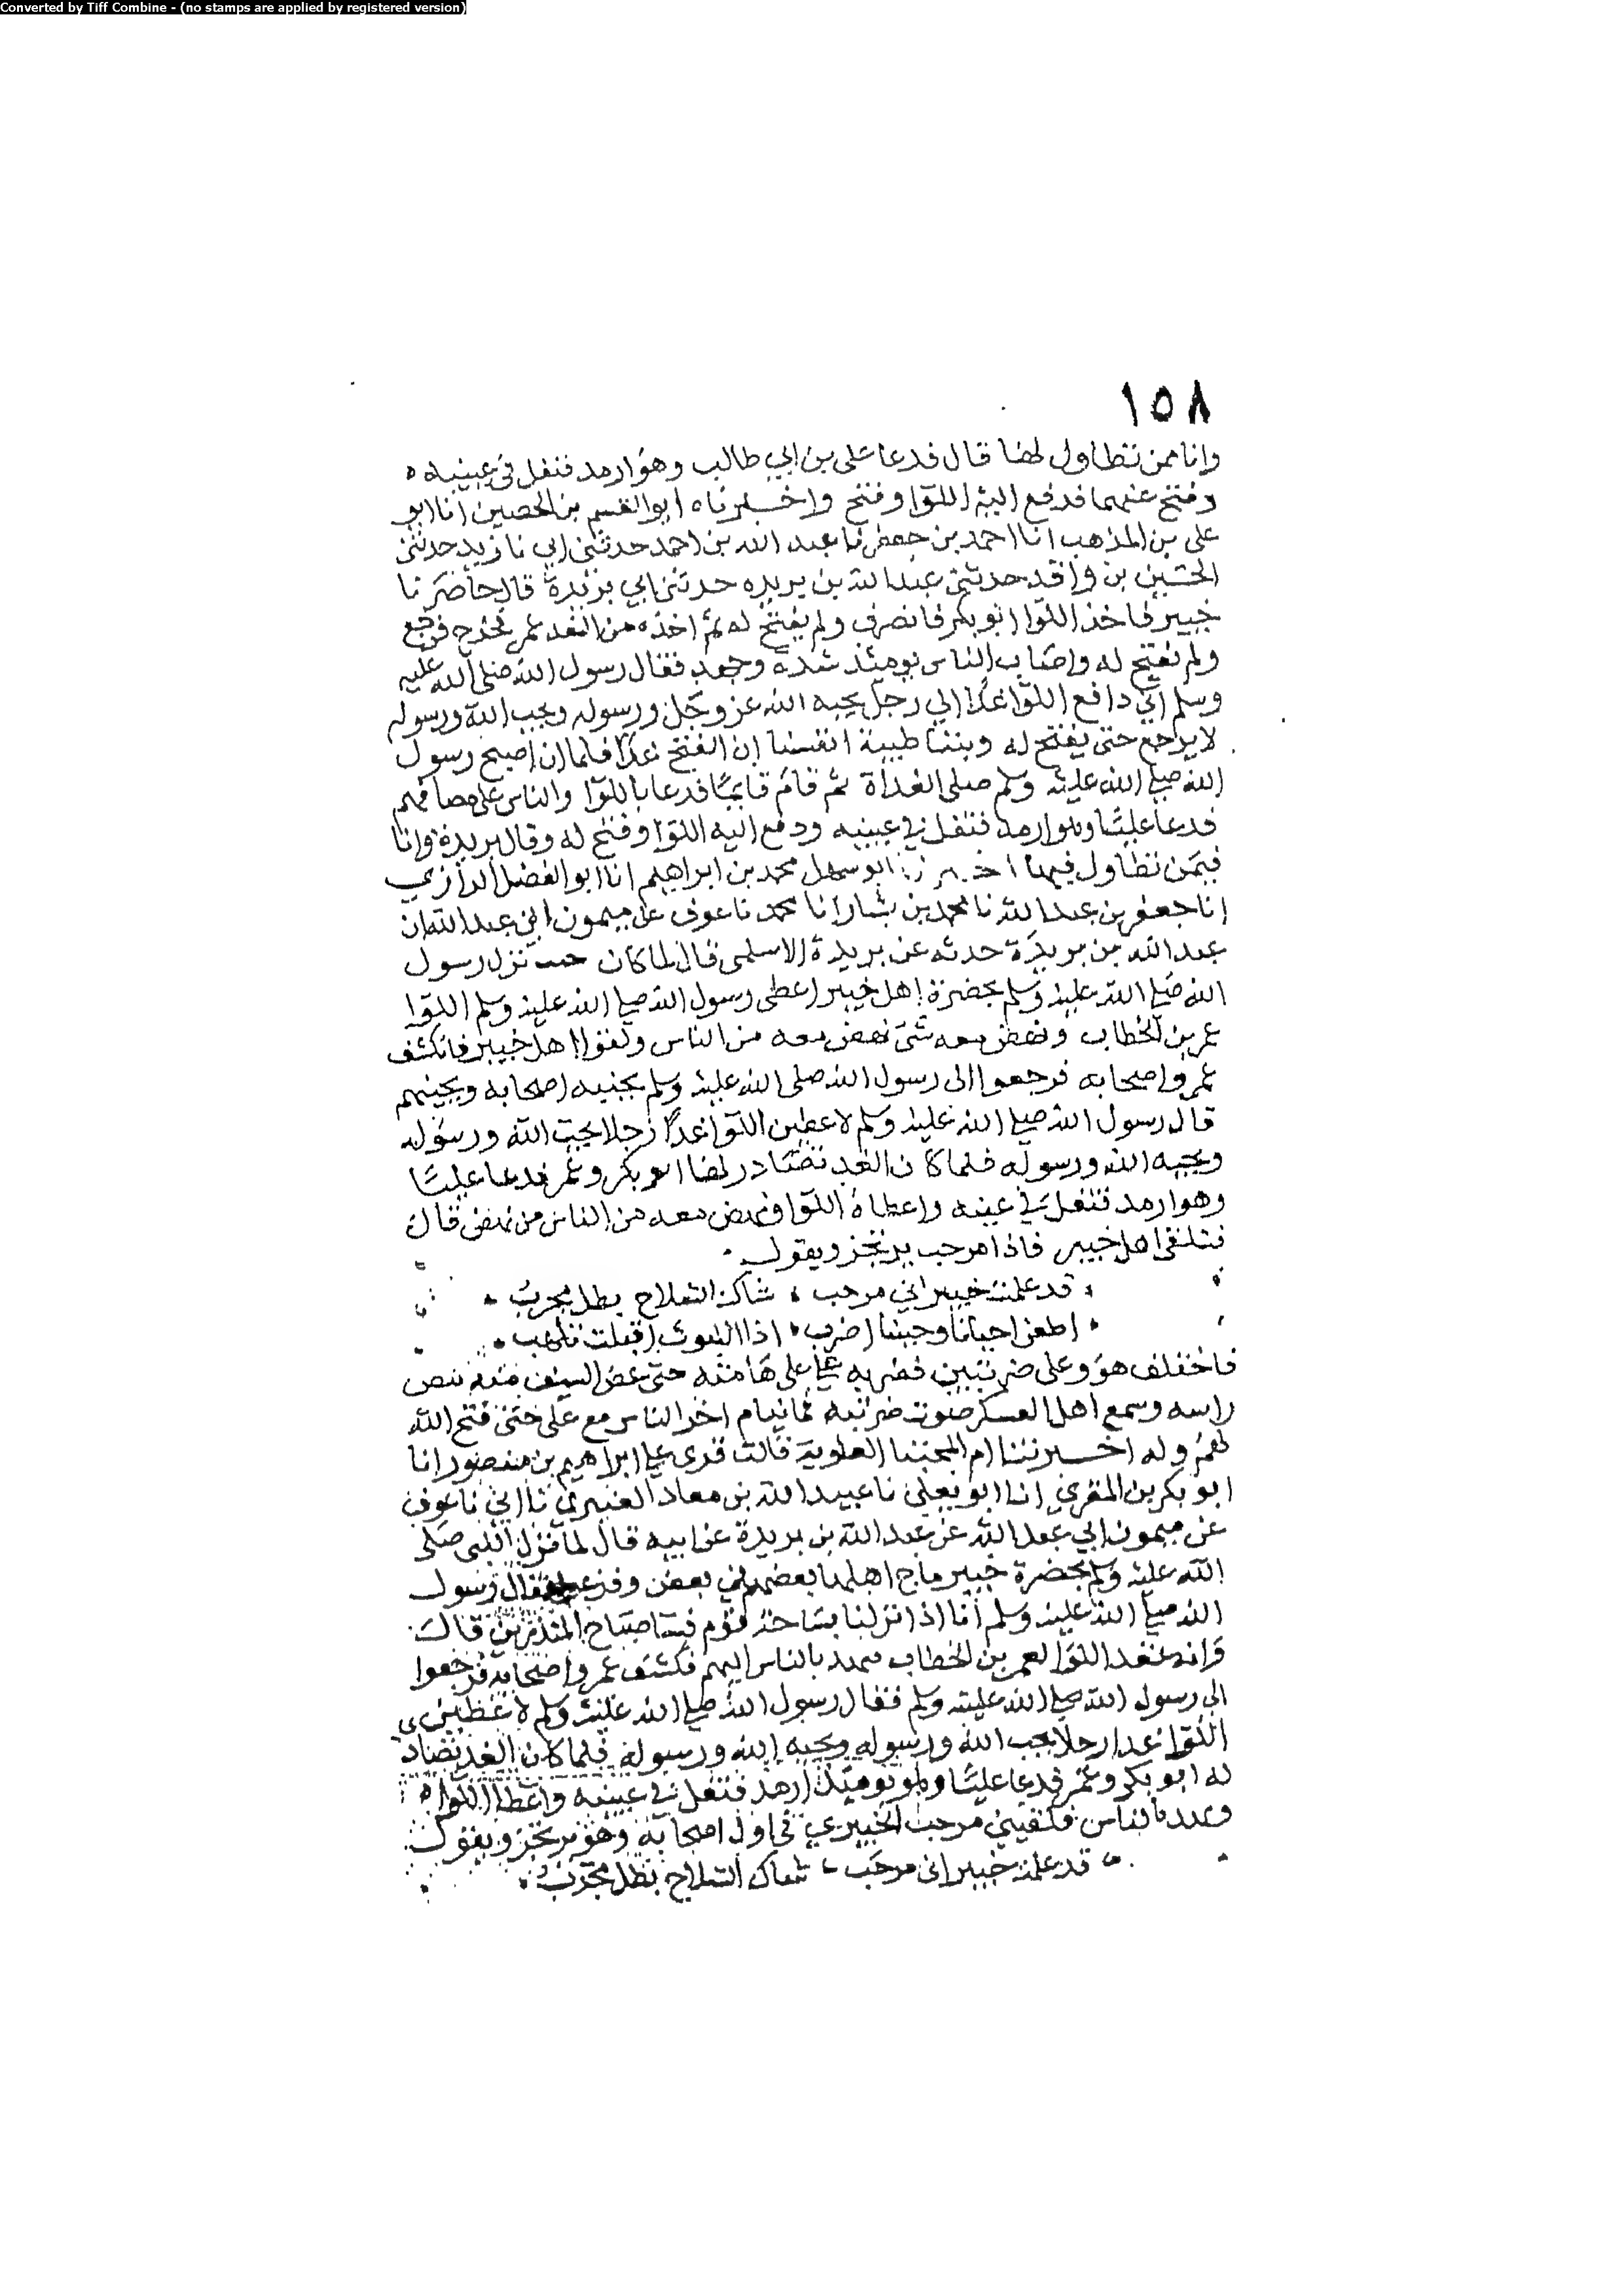 Converted by Tiff Combine - (no stamps are applied by registered version)
١٥٨
وانا ممن تطاول لها قال فدعا على بن ابي طالب وهو ارمد فتفل في عينيه ه
وفتح عنهما فدفع اليه اللوا وفتح واخبرناه ابو القسم بن الحصين انا ابو
على بن المذهب انا احمد بن جعفر نا عبد الله بن احمد حدثني ابي نا زيد حدثني
الحسين بن واقد حدثني عبد الله بن بريده حدثني ابي بريدة قال حاصرنا
خيبر فاخذ اللوا ابو بكر فانصرف ولم يفتح له ثم اخذه من الغد عمر فخرج فرجع
ولم يفتح له واصاب الناس يومئذ شدة وجهد فقال رسول الله صلى الله عليه
وسلم اني دافع اللوا غدا الي رجل يحبه الله عز وجل ورسوله ويحب الله ورسوله
لا يرجع حتى يفتح له وبتنا طيبة انفسنا ان الفتح غدا فلما ان اصبح رسول
الله صلى الله عليه وسلم صلى الغداة ثم قام قايما فدعا باللوا والناس على مصافهم
فدعا عليا وهو ارمد فتفل في عينيه ودفع اليه اللوا وفتح له وقال بريدة وانا
فيمن تطاول فيها اخبرنا ابو سهل محمد بن ابراهيم انا ابو الفضل الرازي
انا جعفر بن عبد الله نا محمد بن بشار نا محمد نا عوف عن ميمون ابي عبد الله ان
عبد الله بن بريدة حدثه عن بريدة الاسلمى قال لما كان حيث نزل رسول
الله صلى الله عليه وسلم بحضرة اهل خيبر اعطى رسول الله صلى الله عليه وسلم اللوا
عمر بن الخطاب ونهض معه من نهض معه من الناس ولقوا اهل خيبر فانكشف
عمر واصحابه فرجعوا الى رسول الله صلى الله عليه وسلم يجبنه اصحابه ويجبنهم
قال رسول الله صلى الله عليه وسلم لاعطين اللوا غدا رجلا يحب الله ورسوله
ويحبه الله ورسوله فلما كان الغد تصادر لها ابو بكر وعمر فدعا عليا
وهو ارمد فتفل في عينه واعطاه اللوا ونهض معه من الناس من نهض قال
فتلقى اهل خيبر فاذا مرحب يرتجز ويقول
قد علمت خيبر اني مرحب شاك السلاح بطل مجرب
اطعن احيانا وحينا اضرب اذا الليوث اقبلت تلهب
فاختلف هو وعلى ضربتين فضربه على على هامته حتى عض السيف منه
راسه وسمع اهل العسكر صوت ضربته فما تتام اخر الناس مع على حتى فتح الله
لهم وله اخبرتنا ام المجتبا العلوية قالت قرى على ابراهيم بن منصور انا
ابو بكر بن المقري انا ابو يعلى نا عبيد الله بن معاذ العنبري نا ابي نا عوف
عن ميمون ابي عبد الله عن عبد الله بن بريدة عن ابيه قال لما نزل النبى صلى
الله عليه وسلم بحضرة خيبر ماج اهلها بعضهم في بعض وفزعوا فقال رسول
الله صلى الله عليه وسلم انا اذا نزلنا بساحة قوم فسا صباح المنذرين قال
وانه عقد اللوا لعمر بن الخطاب فنهد بالناس اليهم فكشف عمر واصحابه فرجعوا
الى رسول الله صلى الله عليه وسلم فقال رسول الله صلى الله عليه وسلم لاعطين
اللوا غدا رجلا يحب الله ورسوله ويحبه الله ورسوله فلما كان الغد تصادر
له ابو بكر وعمر فدعا عليا وهو يومئذ ارمد فتفل في عينه واعطا اللوا ه
بالناس فلقيني مرحب الخيبري في اول اصحابه وهو يرتجز ويقول
قد علمت خيبر انى مرحب شاك السلاح بطل مجرب